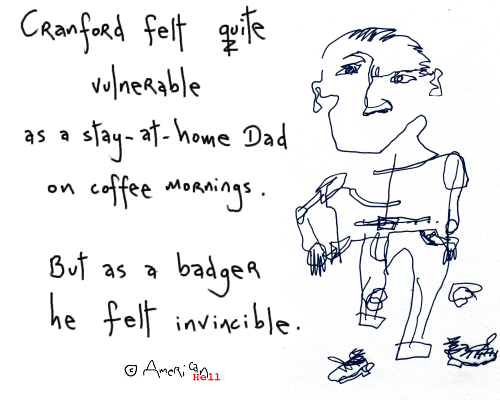 Cranford felt quite
vulnerable
as a stay-at-home Dad
on coffee mornings.
But as a badger
he felt invincible.
© American
Hell